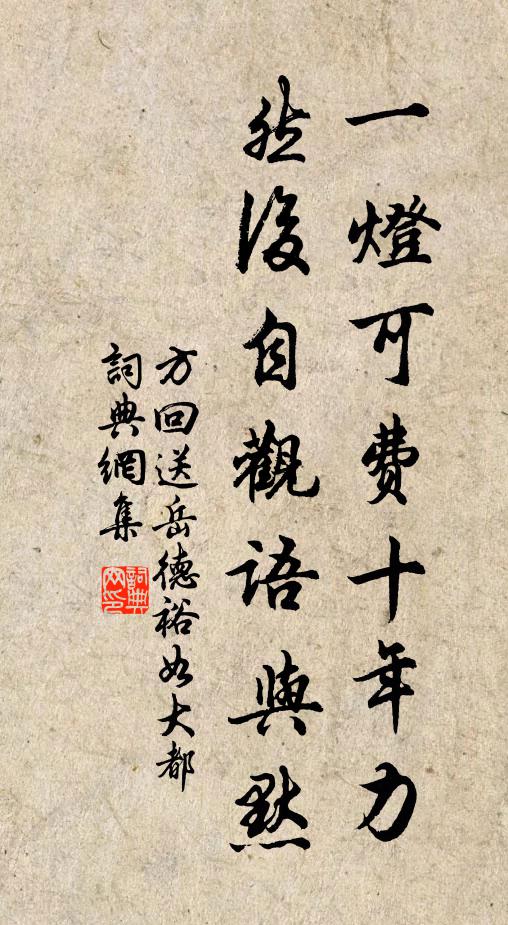 一燈可費十年力
然後自觀語與默
方回送岳德裕如大都
詞典網集
詞典网印